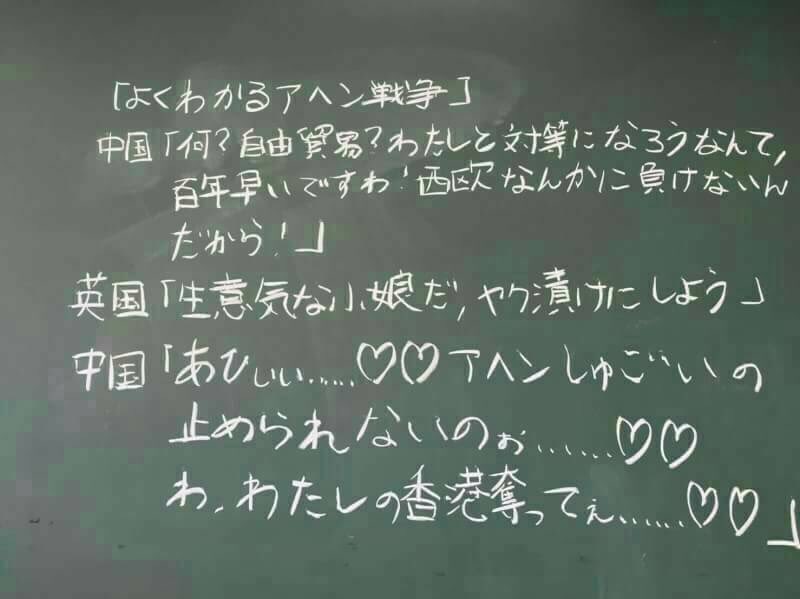 「よくわかるアヘン戦争」
中国「何?自由貿易?わたしと対等になろうなんて,
百年早いですわ!西欧なんかに負けないん
だから!」
英国「生意気な小娘だ,ヤク漬けにしよう」
中国「あひぃぃ……♡♡アヘンしゅごいの
止められないのぉ……♡♡
わ,わたしの香港奪ってぇ……♡♡」